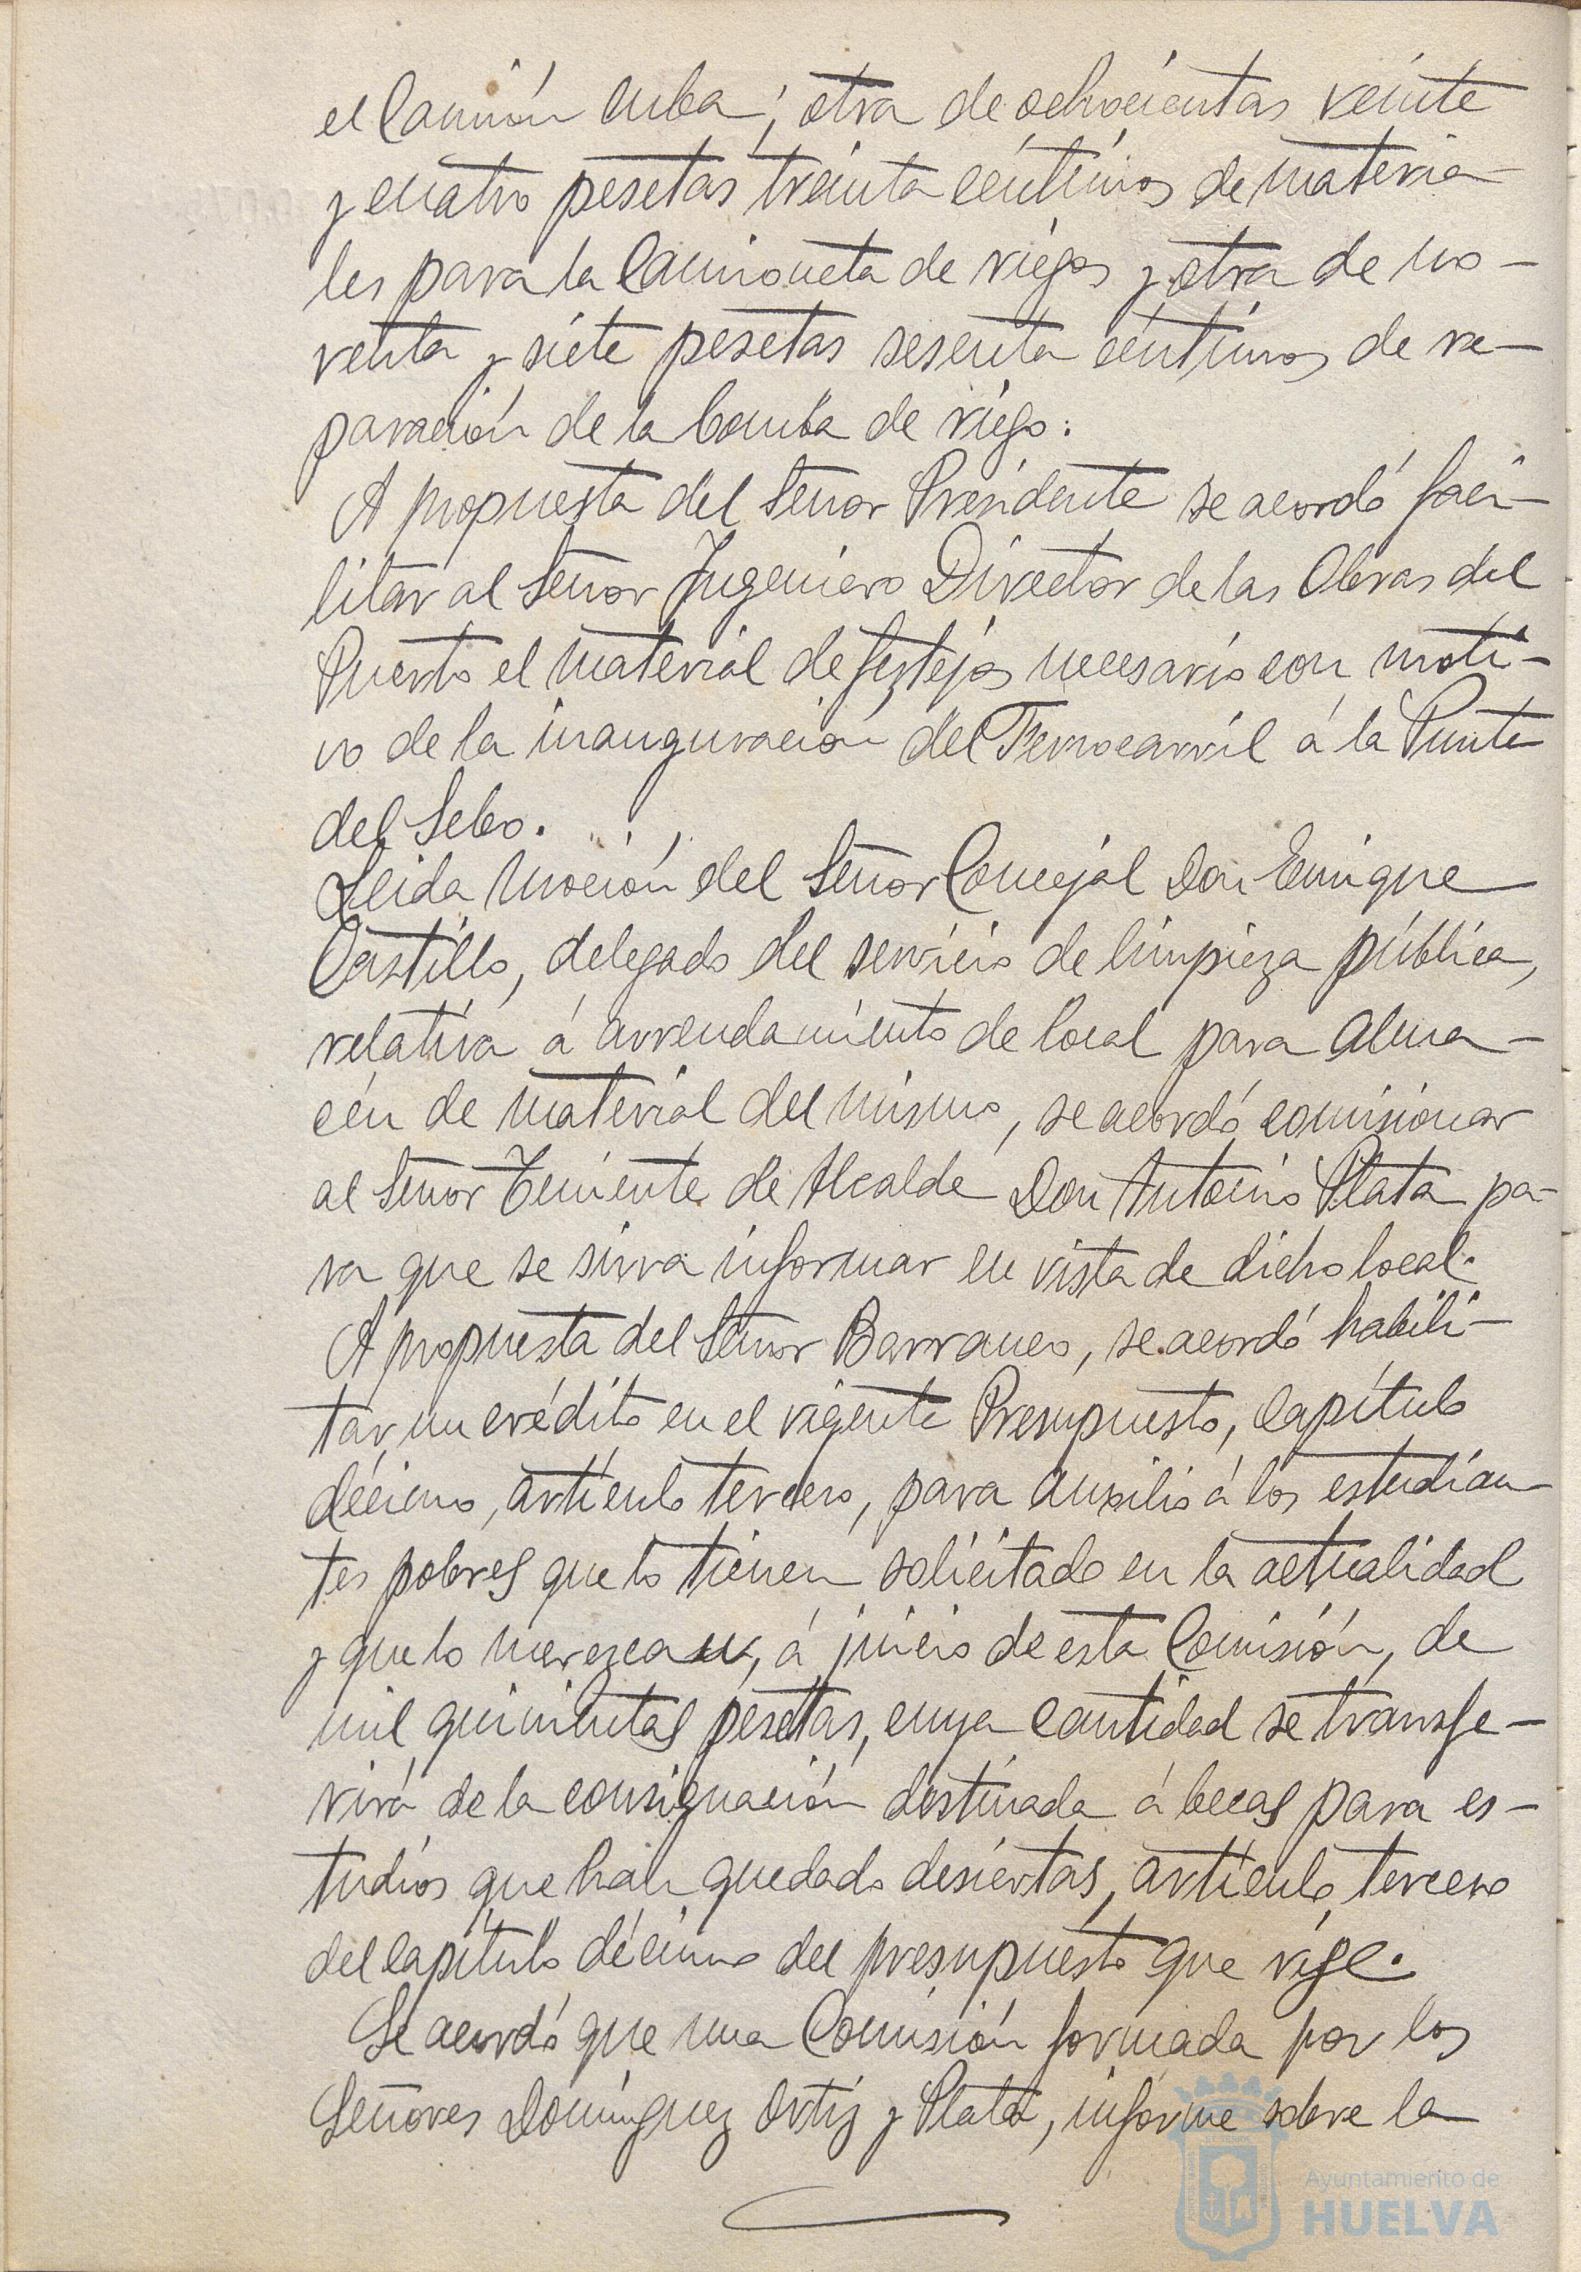 el Camión cuba; otra de ochocientas veinte
y cuatro pesetas treinta céntimos de materia-
les para la Camioneta de riegos y otra de no-
venta y siete pesetas sesenta céntimos de re-
paración de la bomba de riego.
A propuesta del Señor Presidente se acordó faci-
litar al Señor Ingeniero Director de las Obras del
Puerto el material de festejos necesario con moti-
vo de la inauguración del Ferrocarril á la Punta
del Sebo.
Leida moción del Señor Concejal Don Enrique
Castillo, delegado del servicio de limpieza pública,
relativa á arrendamiento de local para alma-
cén de material del mismo, se acordó comisionar
al Señor Teniente de Alcalde Don Antonio Plata pa-
ra que se sirva informar en vista de dicho local.
A propuesta del Señor Barranco, se acordó habili-
tar un crédito en el vigente Presupuesto, Capítulo
décimo, artículo tercero, para auxilio á los estudian-
tes pobres que lo tienen solicitado en la actualidad
y que lo merezcan, á juicio de esta Comisión, de
mil quinientas pesetas, cuya cantidad se transfe-
rirá de la consignación destinada á becas para es-
tudios que han quedado desiertas, artículo tercero
del capítulo décimo del presupuesto que rige.
Se acordó que una Comisión formada por los
Señores Domínguez Ortiz y Plata, informe sobre la
Ayuntamiento de
HUELVA